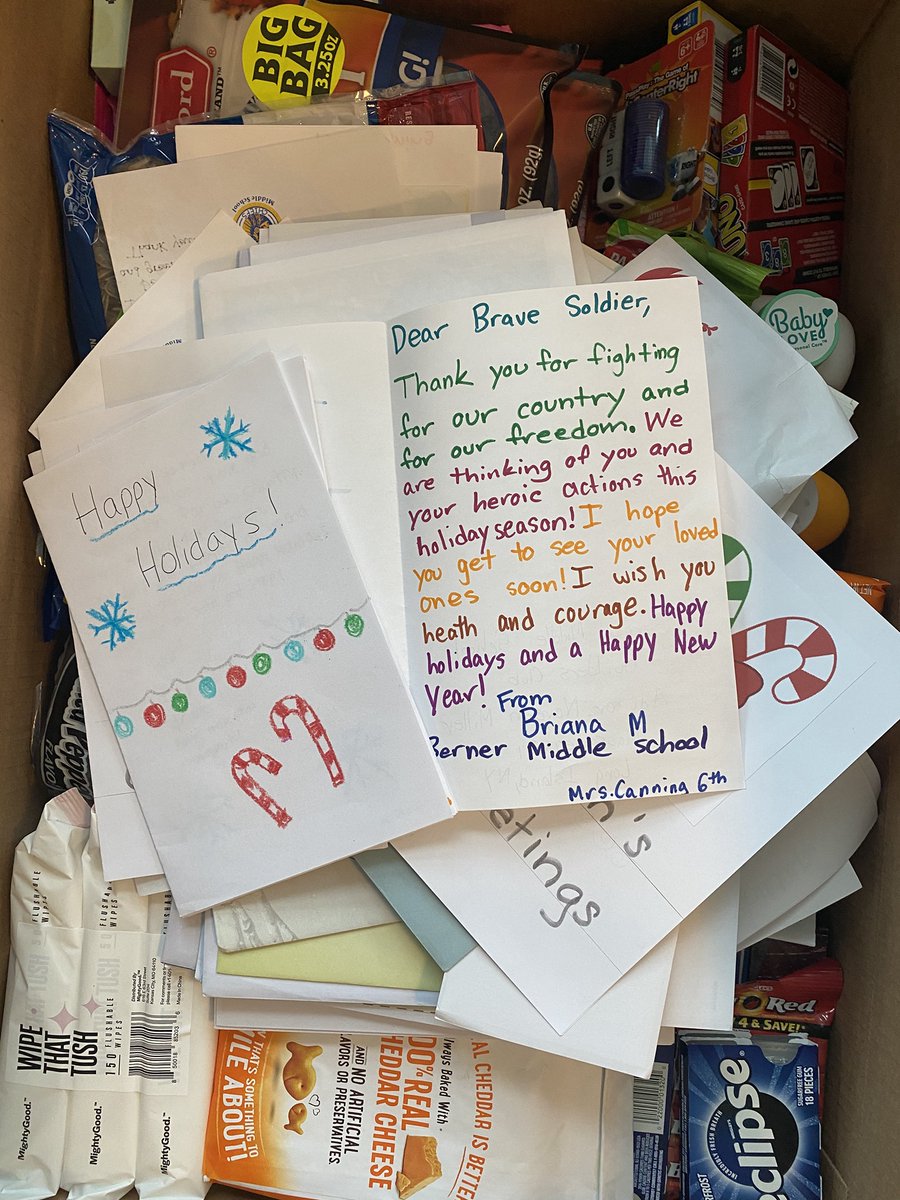 BIG
BAG
3.25oz
Middle School
Thank you
LEFT
RIGHT
UNO
Baby
LOVE
Dear Brave Soldier,
Thank you for fighting
for our country and
for our freedom. We
are thinking of you and
your heroic actions this
holiday season! I hope
you get to see your loved
ones soon! I wish you
heath and courage. Happy
holidays and a Happy New
Year! From
Briana M
Berner Middle school
Mrs. Canning 6th
Happy
Holidays!
WIPE
THAT
TUSH
150 FLUSHABLE
WIPES
FLUSHABLE
WIPES
Distributed By
MightyGood.
Made in China
MightyGood.
MightyGood.
MightyGood.
THAT'S SOMETHING
ABOUT!
AND NO ARTIFICIAL
OR PRESERVATIVES
Always Baked With
100% REAL
CHEDDAR CHEESE
CHEDDAR IS
Red
4 & SAVE!
eclipse
SUGARFREE GUM
18 PIECES